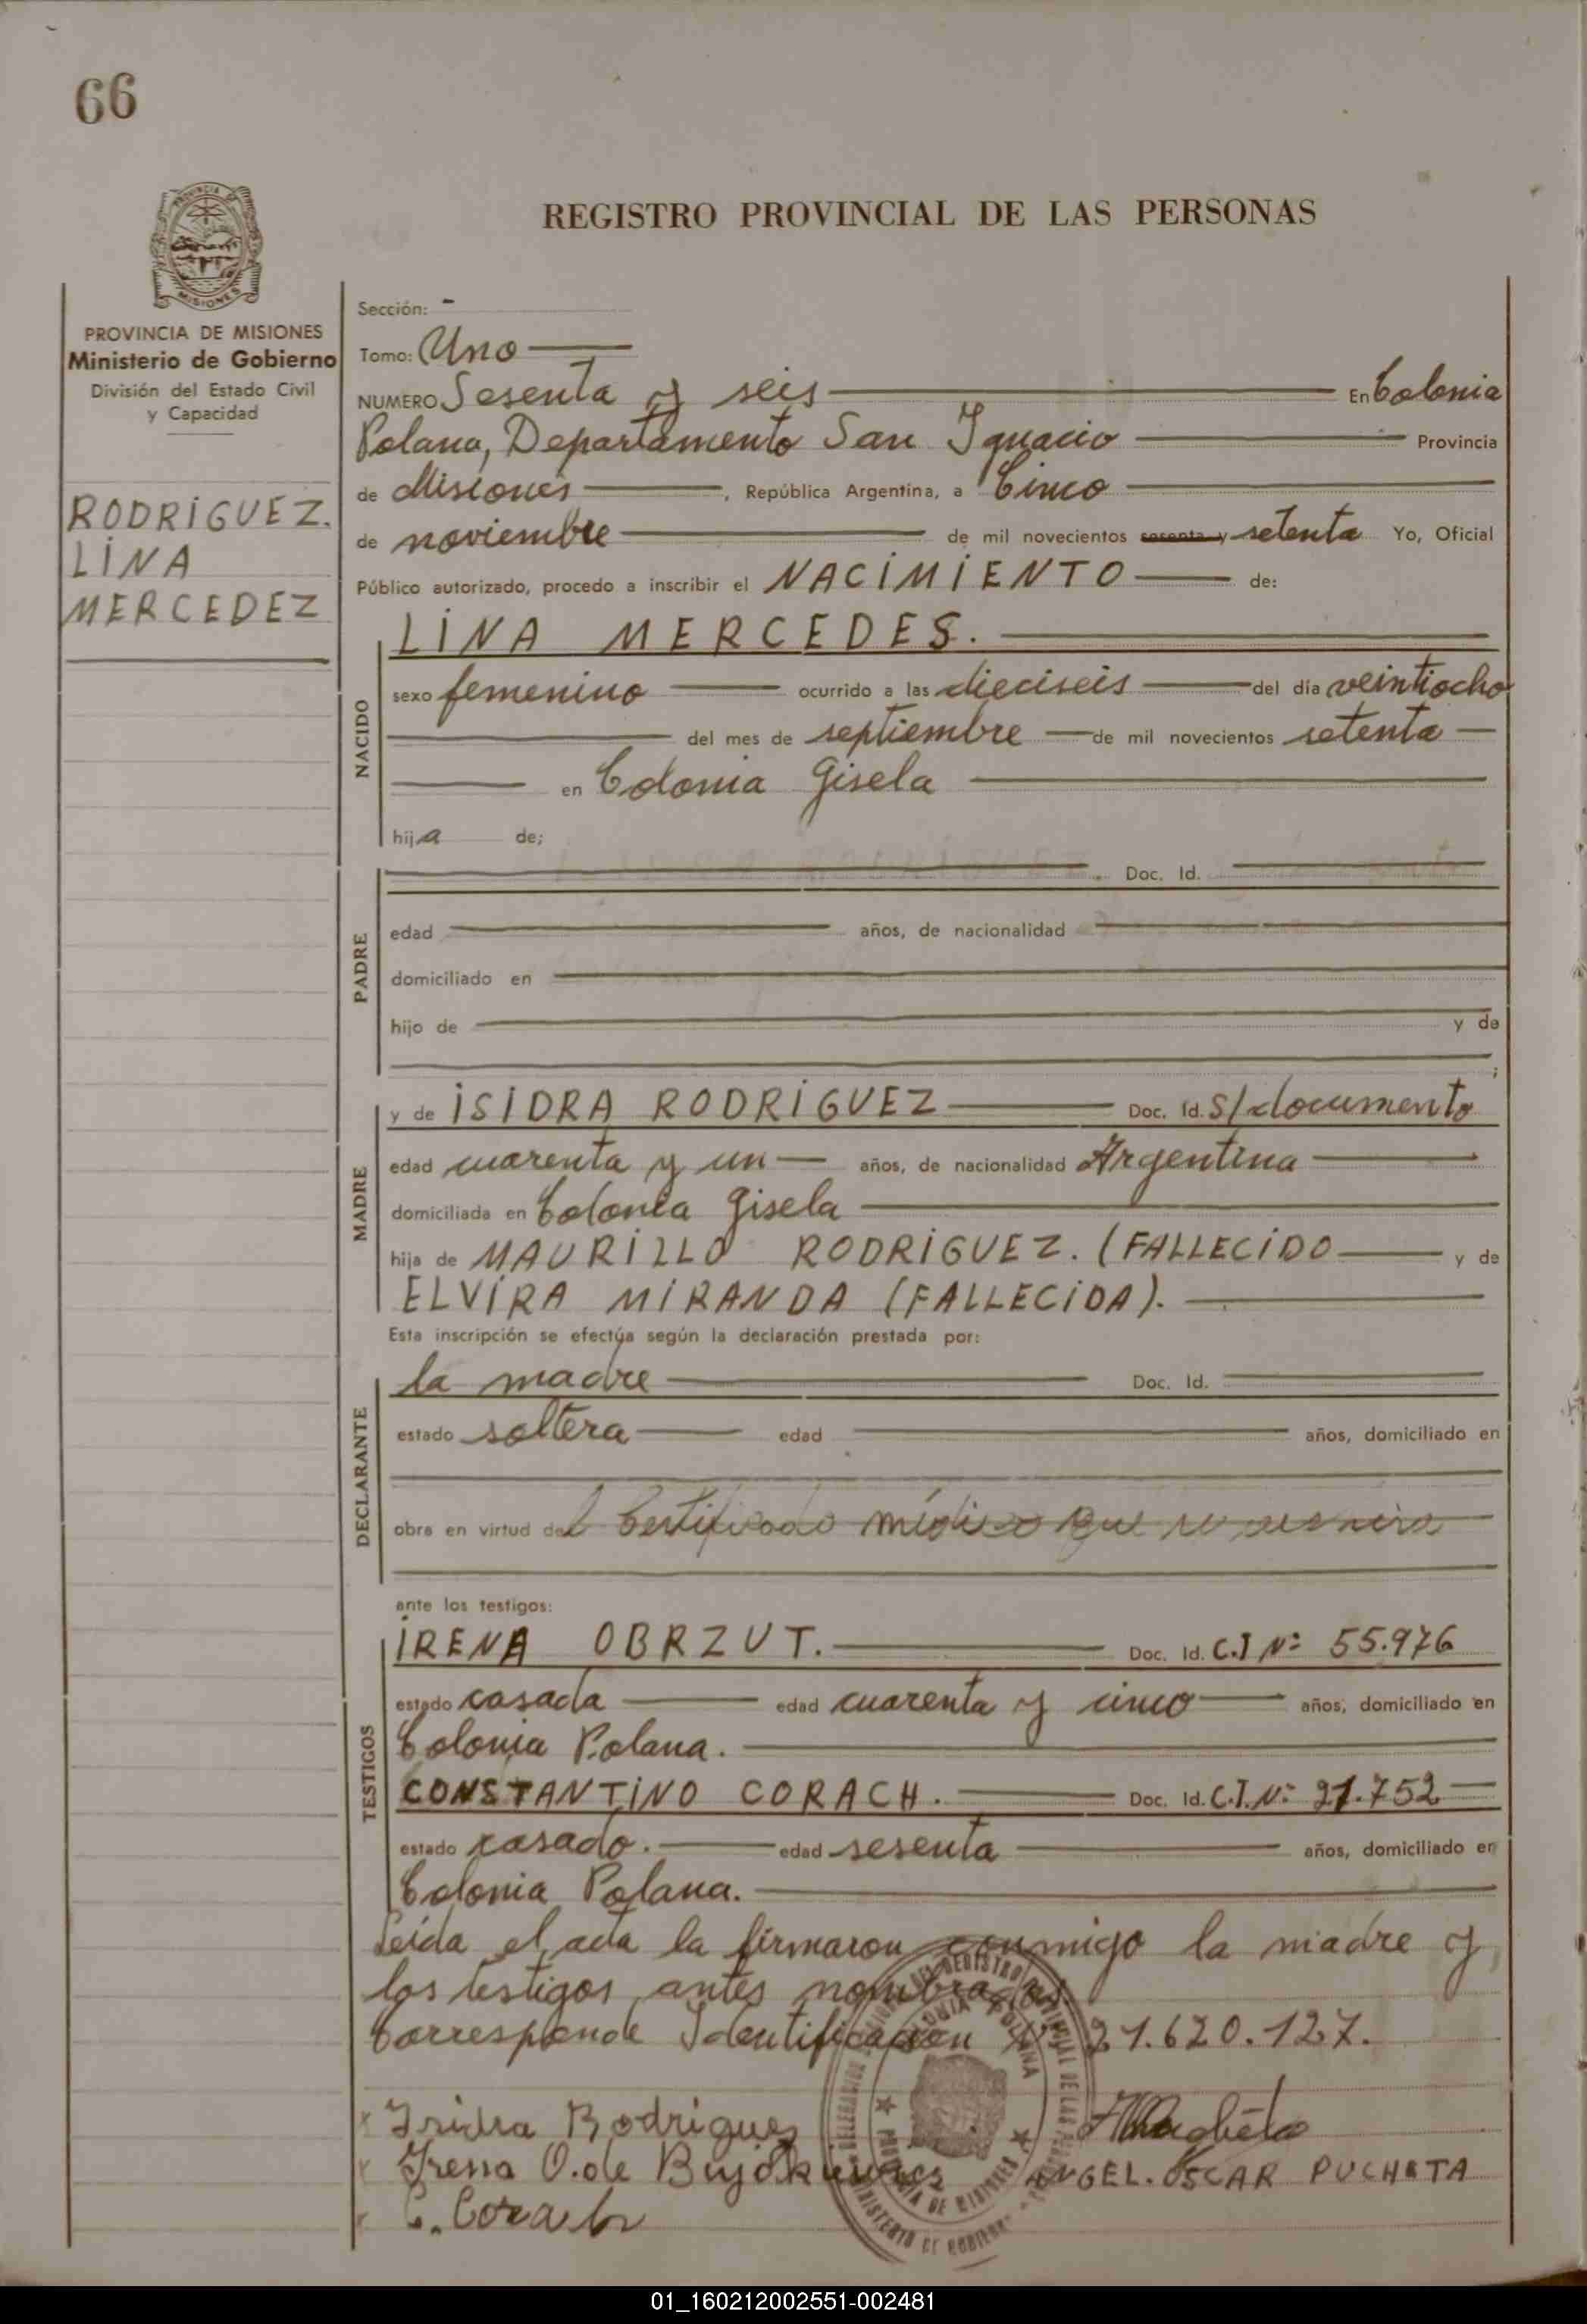 66
REGISTRO PROVINCIAL DE LAS PERSONAS
PROVINCIA DE MISIONES
Ministerio de Gobierno
División del Estado Civil
y Capacidad
RODRIGUEZ.
LINA
MERCEDEZ
Sección: -
Tomo: Uno
NUMERO Sesenta y seis En Colonia
Polana, Departamento San Ignacio Provincia
de Misiones, República Argentina, a Cinco
de noviembre de mil novecientos sesenta y setenta Yo, Oficial
Público autorizado, procedo a inscribir el NACIMIENTO de:
NACIDO
LINA MERCEDES.
sexo femenino ocurrido a las dieciseis del día veintiocho
del mes de septiembre de mil novecientos setenta
en Colonia Gisela
hija de;
PADRE
Doc. Id.
edad años, de nacionalidad
domiciliado en
hijo de y de
;
MADRE
y de ISIDRA RODRIGUEZ Doc. Id. S/documento
edad cuarenta y un años, de nacionalidad Argentina
domiciliada en Colonia Gisela
hija de MAURILLO RODRIGUEZ. (FALLECIDO y de
ELVIRA MIRANDA (FALLECIDA).
Esta inscripción se efectúa según la declaración prestada por:
DECLARANTE
la madre Doc. Id.
estado soltera edad años, domiciliado en
obra en virtud del Certificado médico que se
ante los testigos:
TESTIGOS
IRENA OBRZUT. Doc. Id. C.I Nº 55.976
estado casada edad cuarenta y cinco años, domiciliado en
Colonia Polana.
CONSTANTINO CORACH. Doc. Id. C.I. Nº 21.752
estado casado. edad sesenta años, domiciliado en
Colonia Polana.
Leida el acta la firmaron conmigo la madre y
los testigos antes nombrados
Corresponde Identificacion Nº 21.620.127.
Isidra Rodriguez
Irena O. de
ANGEL. OSCAR PUCHETA
C. Corach
01_160212002551-002481